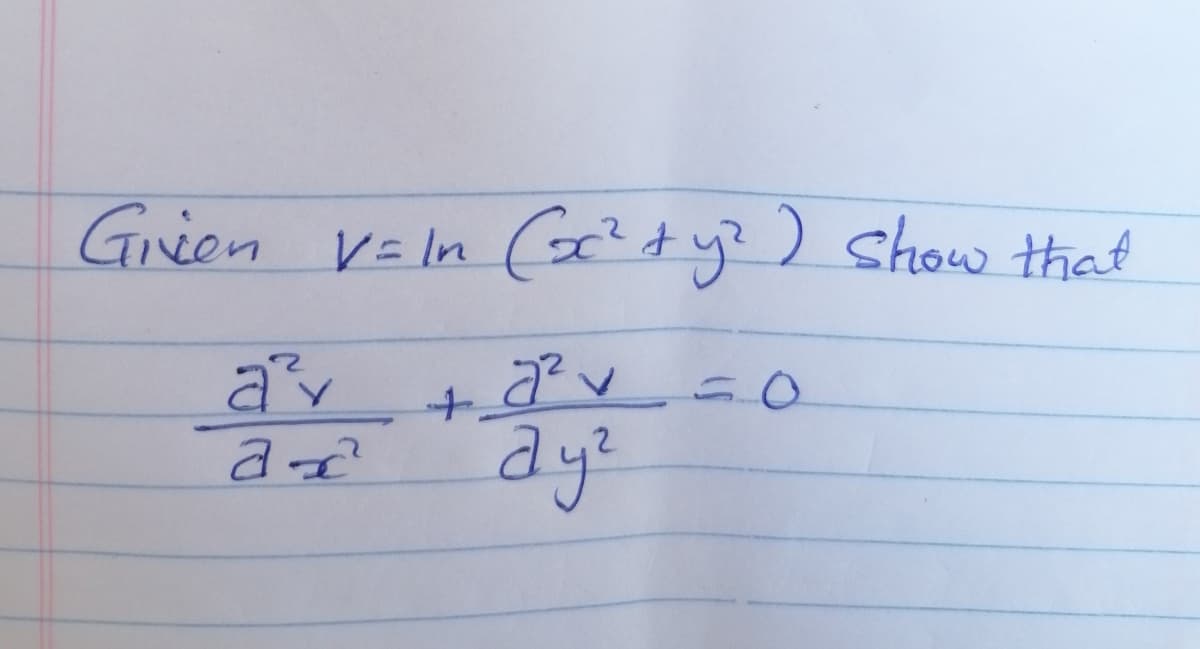 Given v = ln (x² + y²) show that
∂²v/∂x² + ∂²v/∂y² = 0